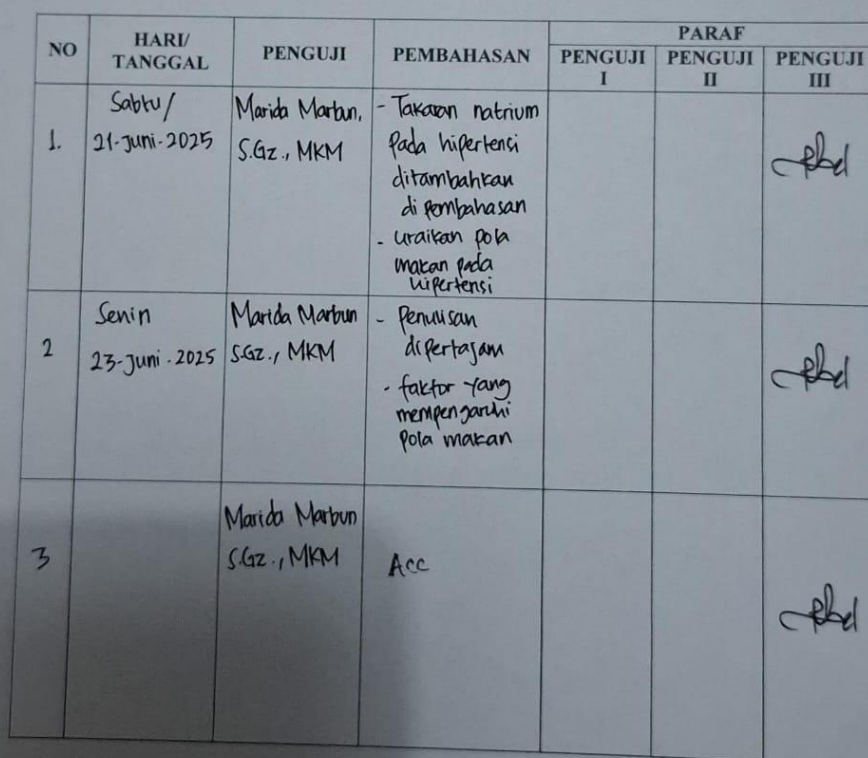 NO
HARI/
TANGGAL
PENGUJI
PEMBAHASAN
PARAF
PENGUJI
I
PENGUJI
II
PENGUJI
III
1.
Sabtu/
21-Juni-2025
Marida Marbun,
S.Gz., MKM
- Takaran natrium
pada hipertensi
ditambahkan
di pembahasan
- uraikan pola
makan pada
hipertensi
2
Senin
23-Juni-2025
Marida Marbun
S.Gz., MKM
- Penulisan
dipertajam
- faktor yang
mempengaruhi
pola makan
3
Marida Marbun
S.Gz., MKM
Acc